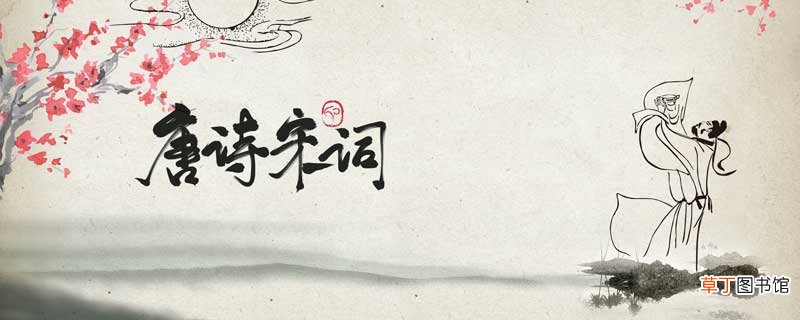 唐诗宋词
草丁图书馆